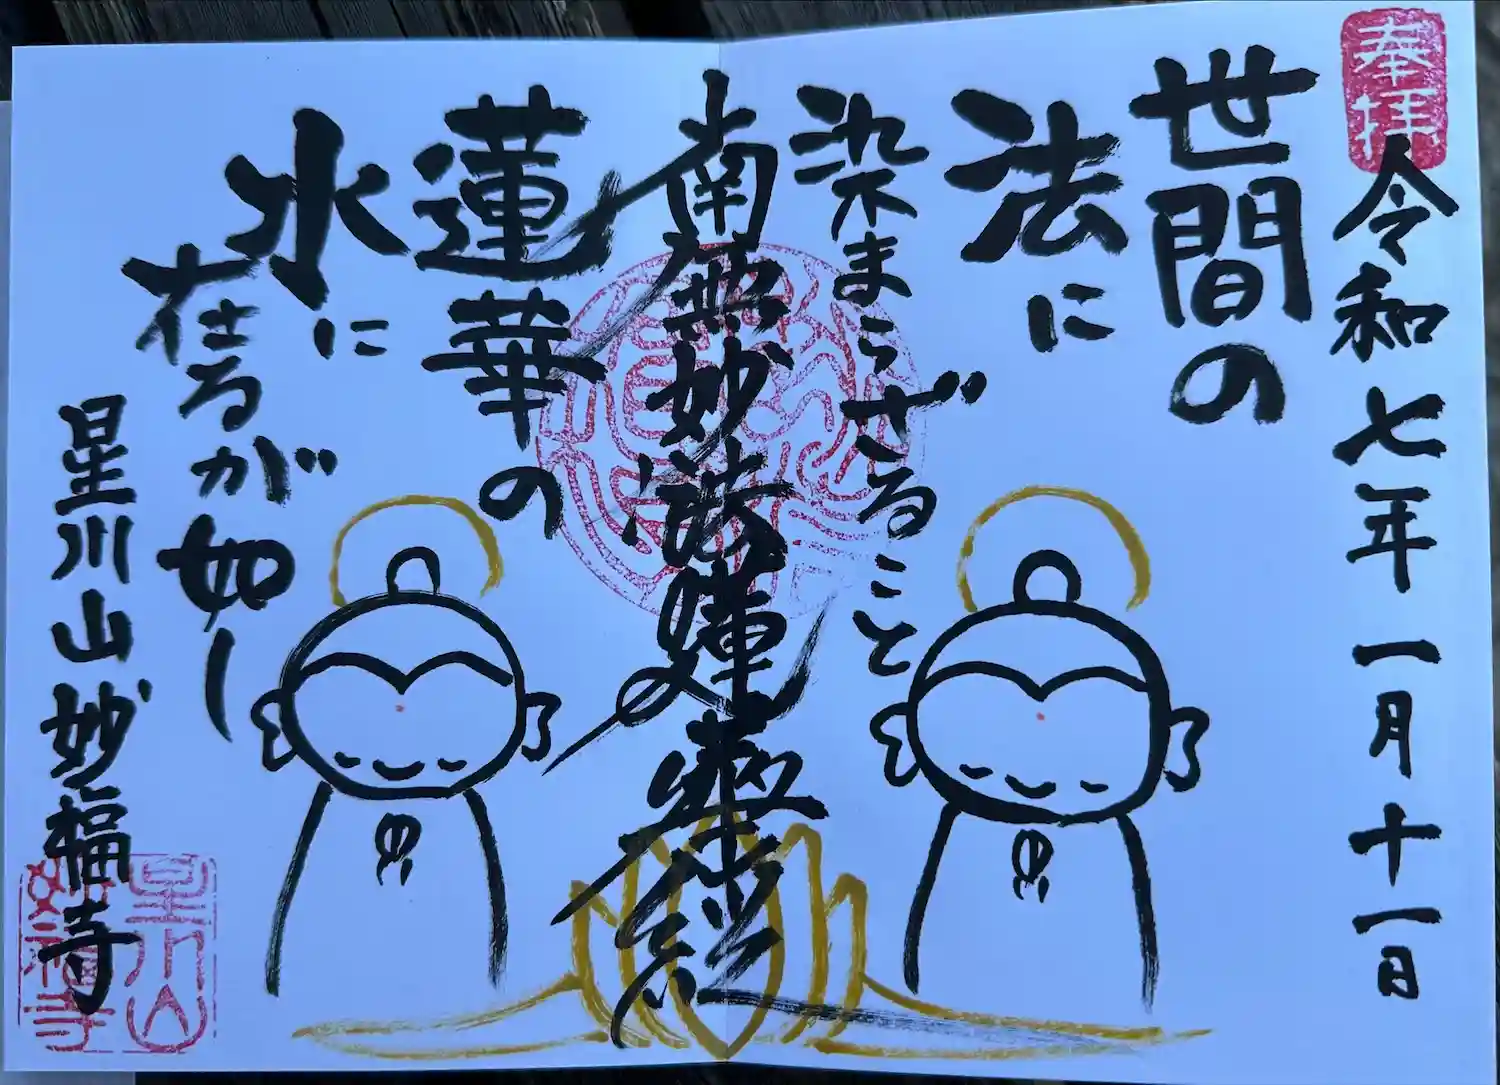 奉拝
令和七年一月十一日
世間の
法に
染まらざること
南無妙法蓮華経
蓮華の
水に
在るが如し
星川山妙福寺
星川山
妙福寺